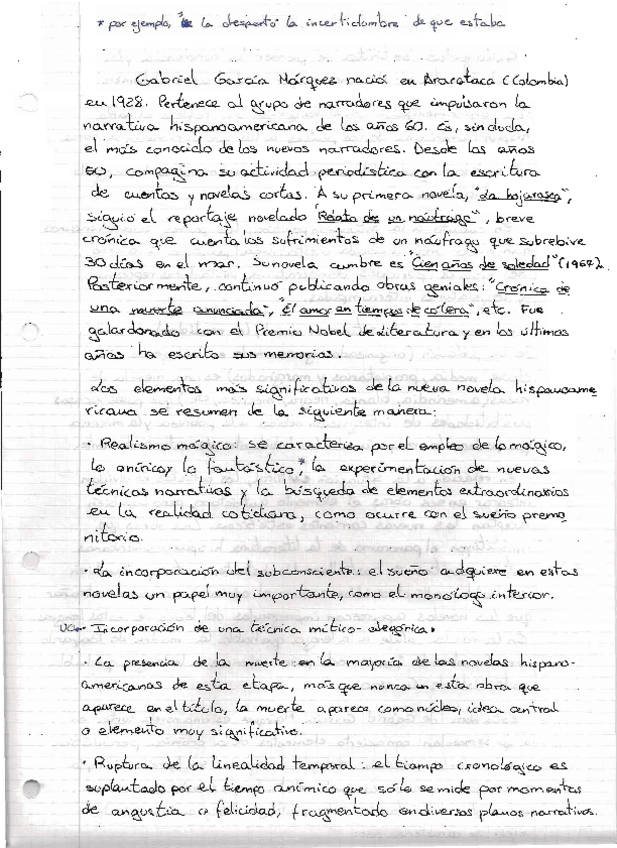 * por ejemplo, "la despertó la incertidumbre de que estaba
Gabriel García Márquez nació en Aracataca (Colombia)
en 1928. Pertenece al grupo de narradores que impulsaron la
narrativa hispanoamericana de los años 60. Es, sin duda,
el más conocido de los nuevos narradores. Desde los años
60, compagina su actividad periodística con la escritura
de cuentos y novelas cortas. A su primera novela, "La hojarasca",
siguió el reportaje novelado "Relato de un naúfrago", breve
crónica que cuenta los sufrimientos de un naúfrago que subrebive
30 días en el mar. Su novela cumbre es "Cien años de soledad" (1967).
Posteriormente, continuó publicando obras geniales: "Crónica de
una muerte anunciada", "El amor en tiempos de cólera", etc. Fue
galardonado con el Premio Nobel de Literatura y en los últimos
años ha escrito sus memorias.
Los elementos más significativos de la nueva novela hispanoame
ricana se resumen de la siguiente manera:
· Realismo mágico: se caracteriza por el empleo de lo mágico,
lo onírico y lo fantástico,* la experimentación de nuevas
técnicas narrativas y la búsqueda de elementos extraordinarios
en la realidad cotidiana, como ocurre con el sueño premo
nitorio.
· La incorporación del subconsciente: el sueño adquiere en estas
novelas un papel muy importante, como el monólogo interior.
· Incorporación de una técnica mítico-alegórica.
· La presencia de la muerte en la mayoría de las novelas hispano-
americanas de esta etapa, más que nunca en esta obra que
aparece en el título, la muerte aparece como núcleo, idea central
o elemento muy significativo.
· Ruptura de la linealidad temporal: el tiempo cronológico es
suplantado por el tiempo anímico que sólo se mide por momentos
de angustia o felicidad, fragmentado en diversos planos narrativos.